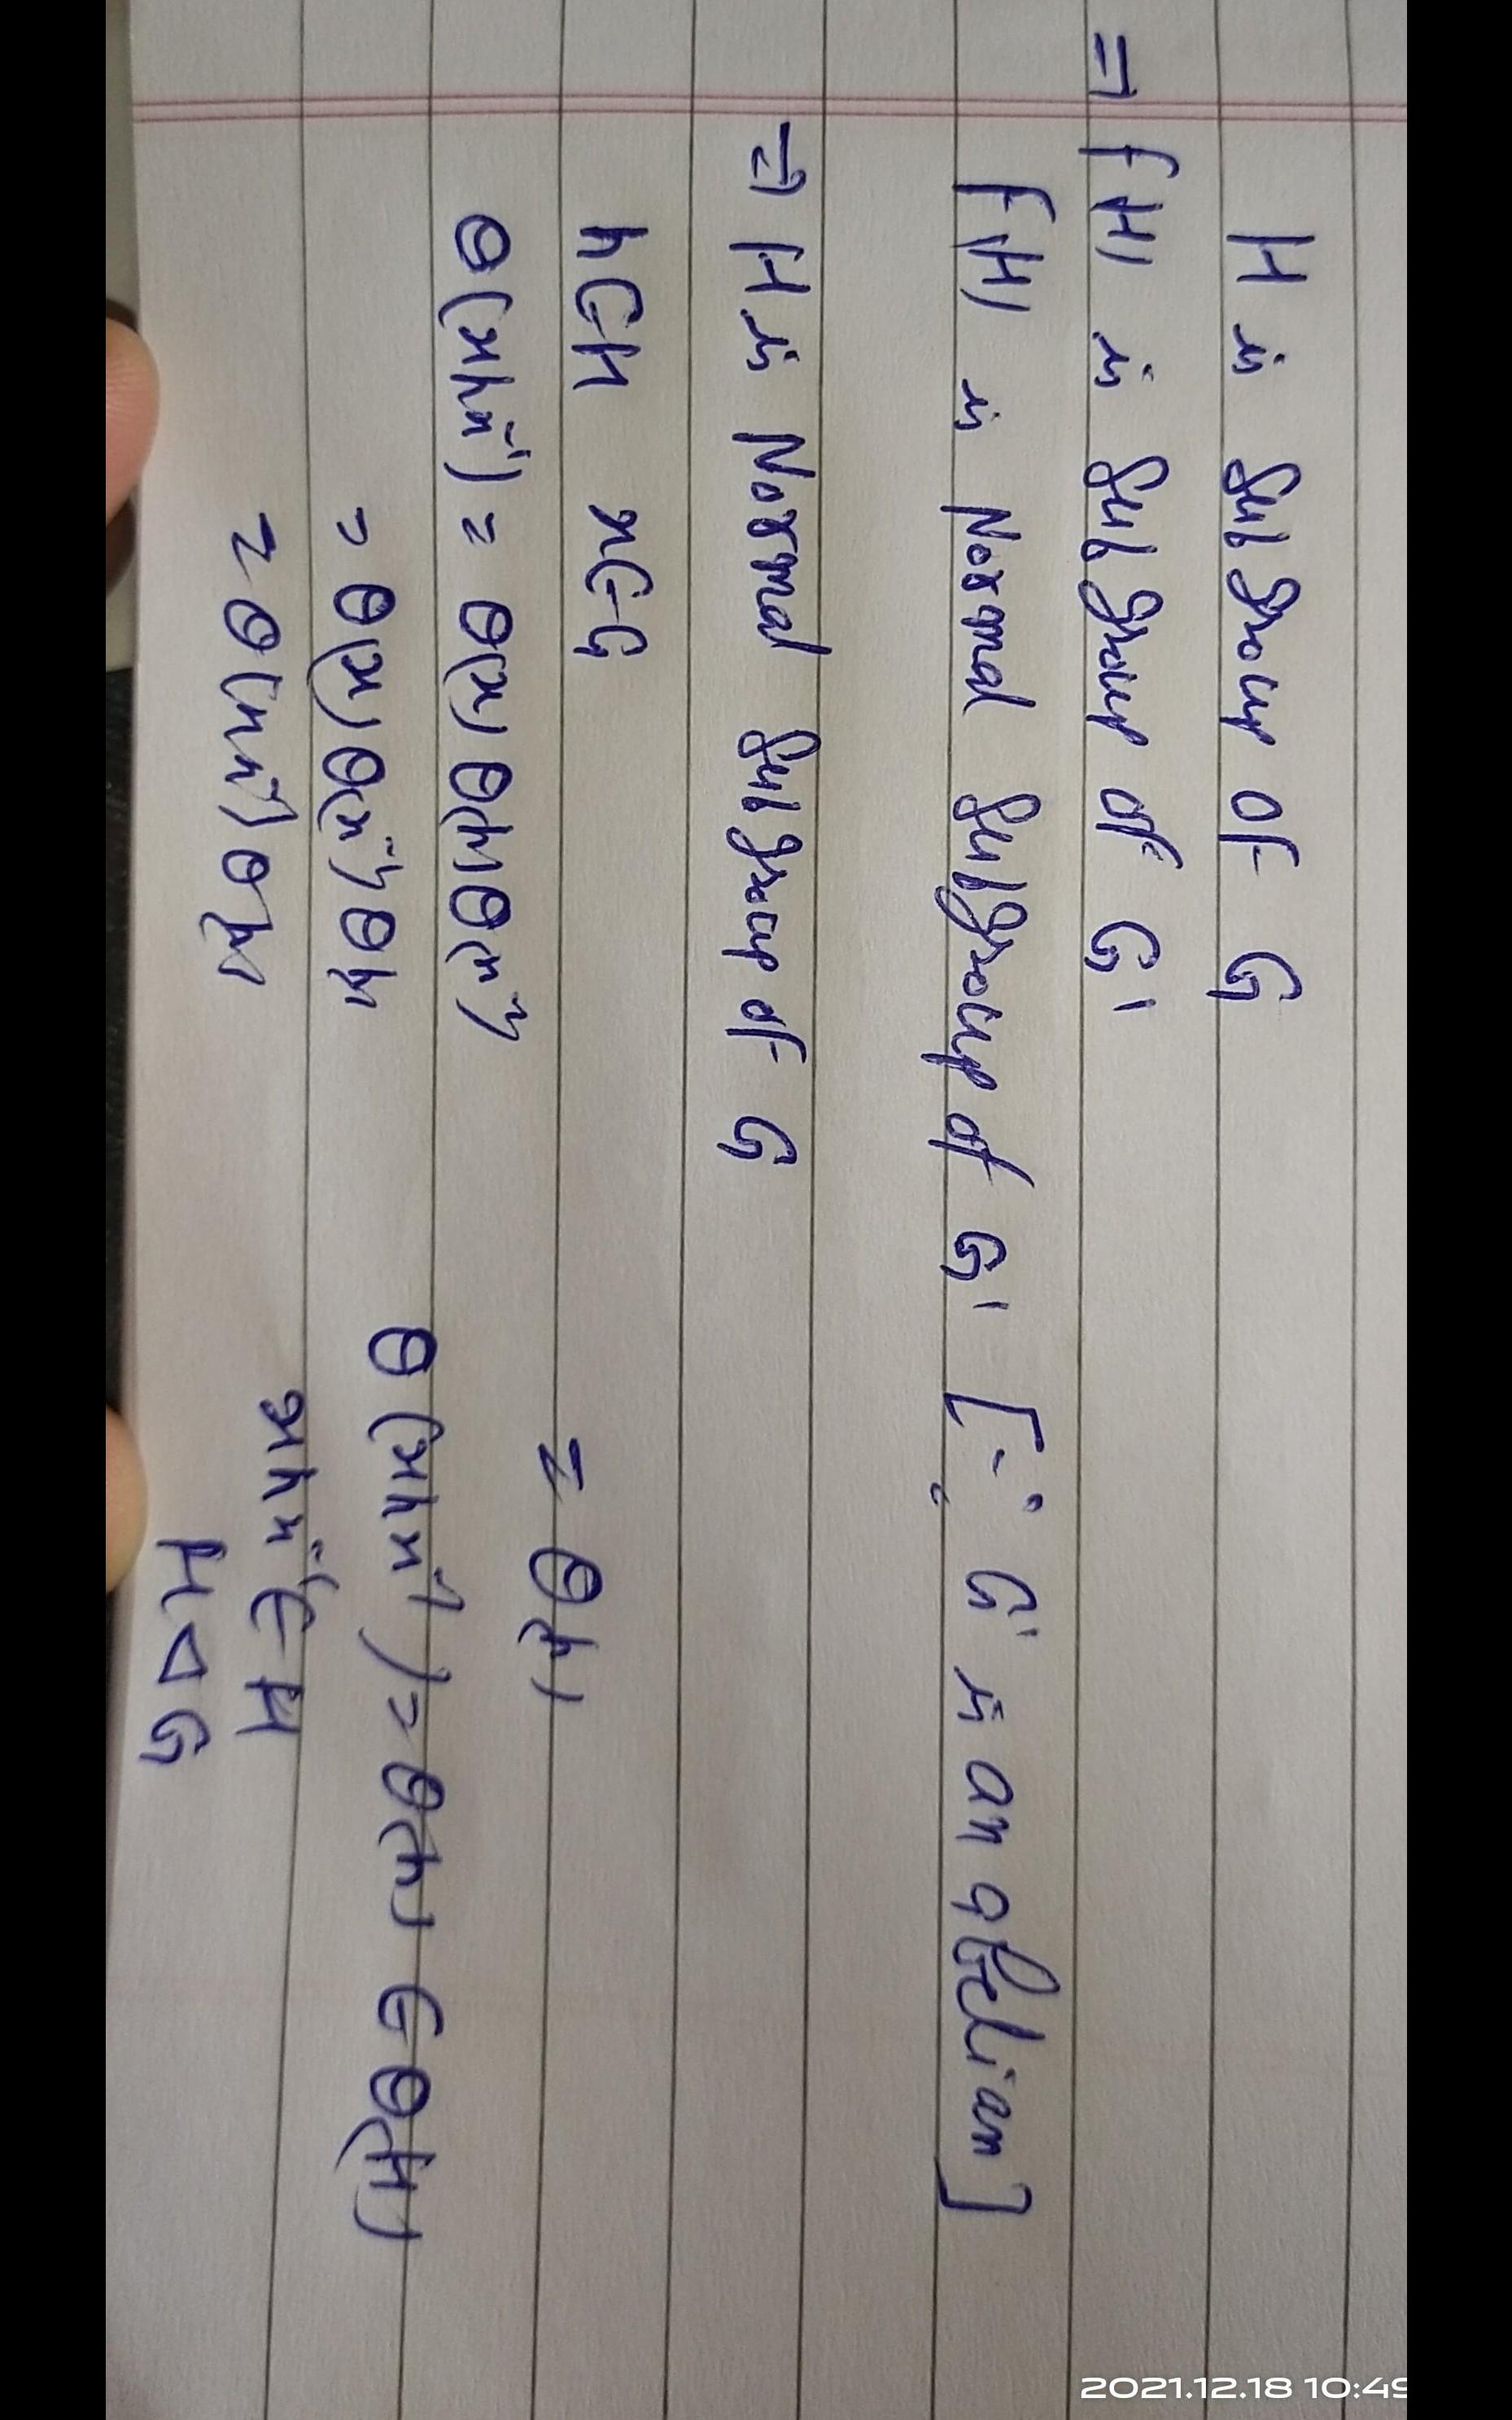 H is subgroup of G
⇒ f(H) is subgroup of G'
f(H) is Normal subgroup of G' [∵ G' is an abelian]
⇒ H is Normal subgroup of G
h∈H x∈G
θ(xhx⁻¹) = θ(x) θ(h) θ(x⁻¹)
= θ(x) θ(x⁻¹) θ(h)
= θ(xx⁻¹) θ(h)
= θ(h)
θ(xhx⁻¹) = θ(h) ∈ θ(H)
xhx⁻¹ ∈ H
H ⊲ G
2021.12.18 10:49